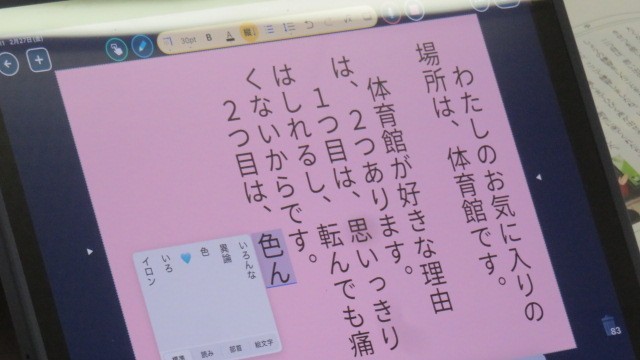 2月27日(金)
30pt
B
A
縦
わたしのお気に入りの
場所は、体育館です。
体育館が好きな理由
は、2つあります。
1つ目は、思いっきり
はしれるし、転んでも痛
くないからです。
2つ目は、色ん
いろんな
異論
色
いろ
🩵
イロン
編集
読み
部首
絵文字
83